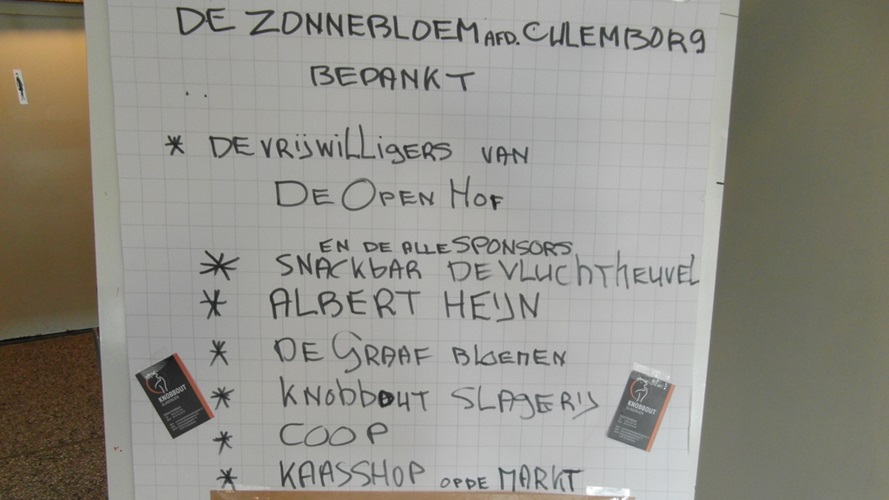 DE ZONNEBLOEM AFD. CULEMBORG
BEPANKT
* DE VRIJWILLIGERS VAN
DE OPEN HOF
EN DE ALLE SPONSORS
* SNACKBAR DE VLUCHTHEUVEL
* ALBERT HEIJN
* DE GRAAF BLOEMEN
* KNOBBOUT SLAGERIJ
* COOP
* KAASSHOP OPDE MARKT
KNOBBOUT
KNOBBOUT